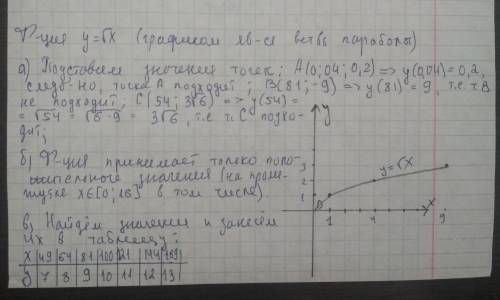 Ф-ция y=√x (графиком яв-ся ветвь параболы)
а) Подставим значения точек; A(0,04; 0,2) => y(0,04)=0,2,
след-но, точка A подходит; B(81; -9) => y(81)=9, т.е. т.B
не подходит; C(54; 3√6) => y(54)=
=√54 = √6·9 = 3√6, т.е. т. C подхо-
дит;
б) Ф-ция принимает только поло-
жительные значения (на проме-
жутке x∈[0;16] в том числе).
в) Найдём значения и занесём
их в таблицу:
x 49 64 81 100 121 144 169
y 7 8 9 10 11 12 13
y
3
2
1
0
1
4
9
x
y=√x